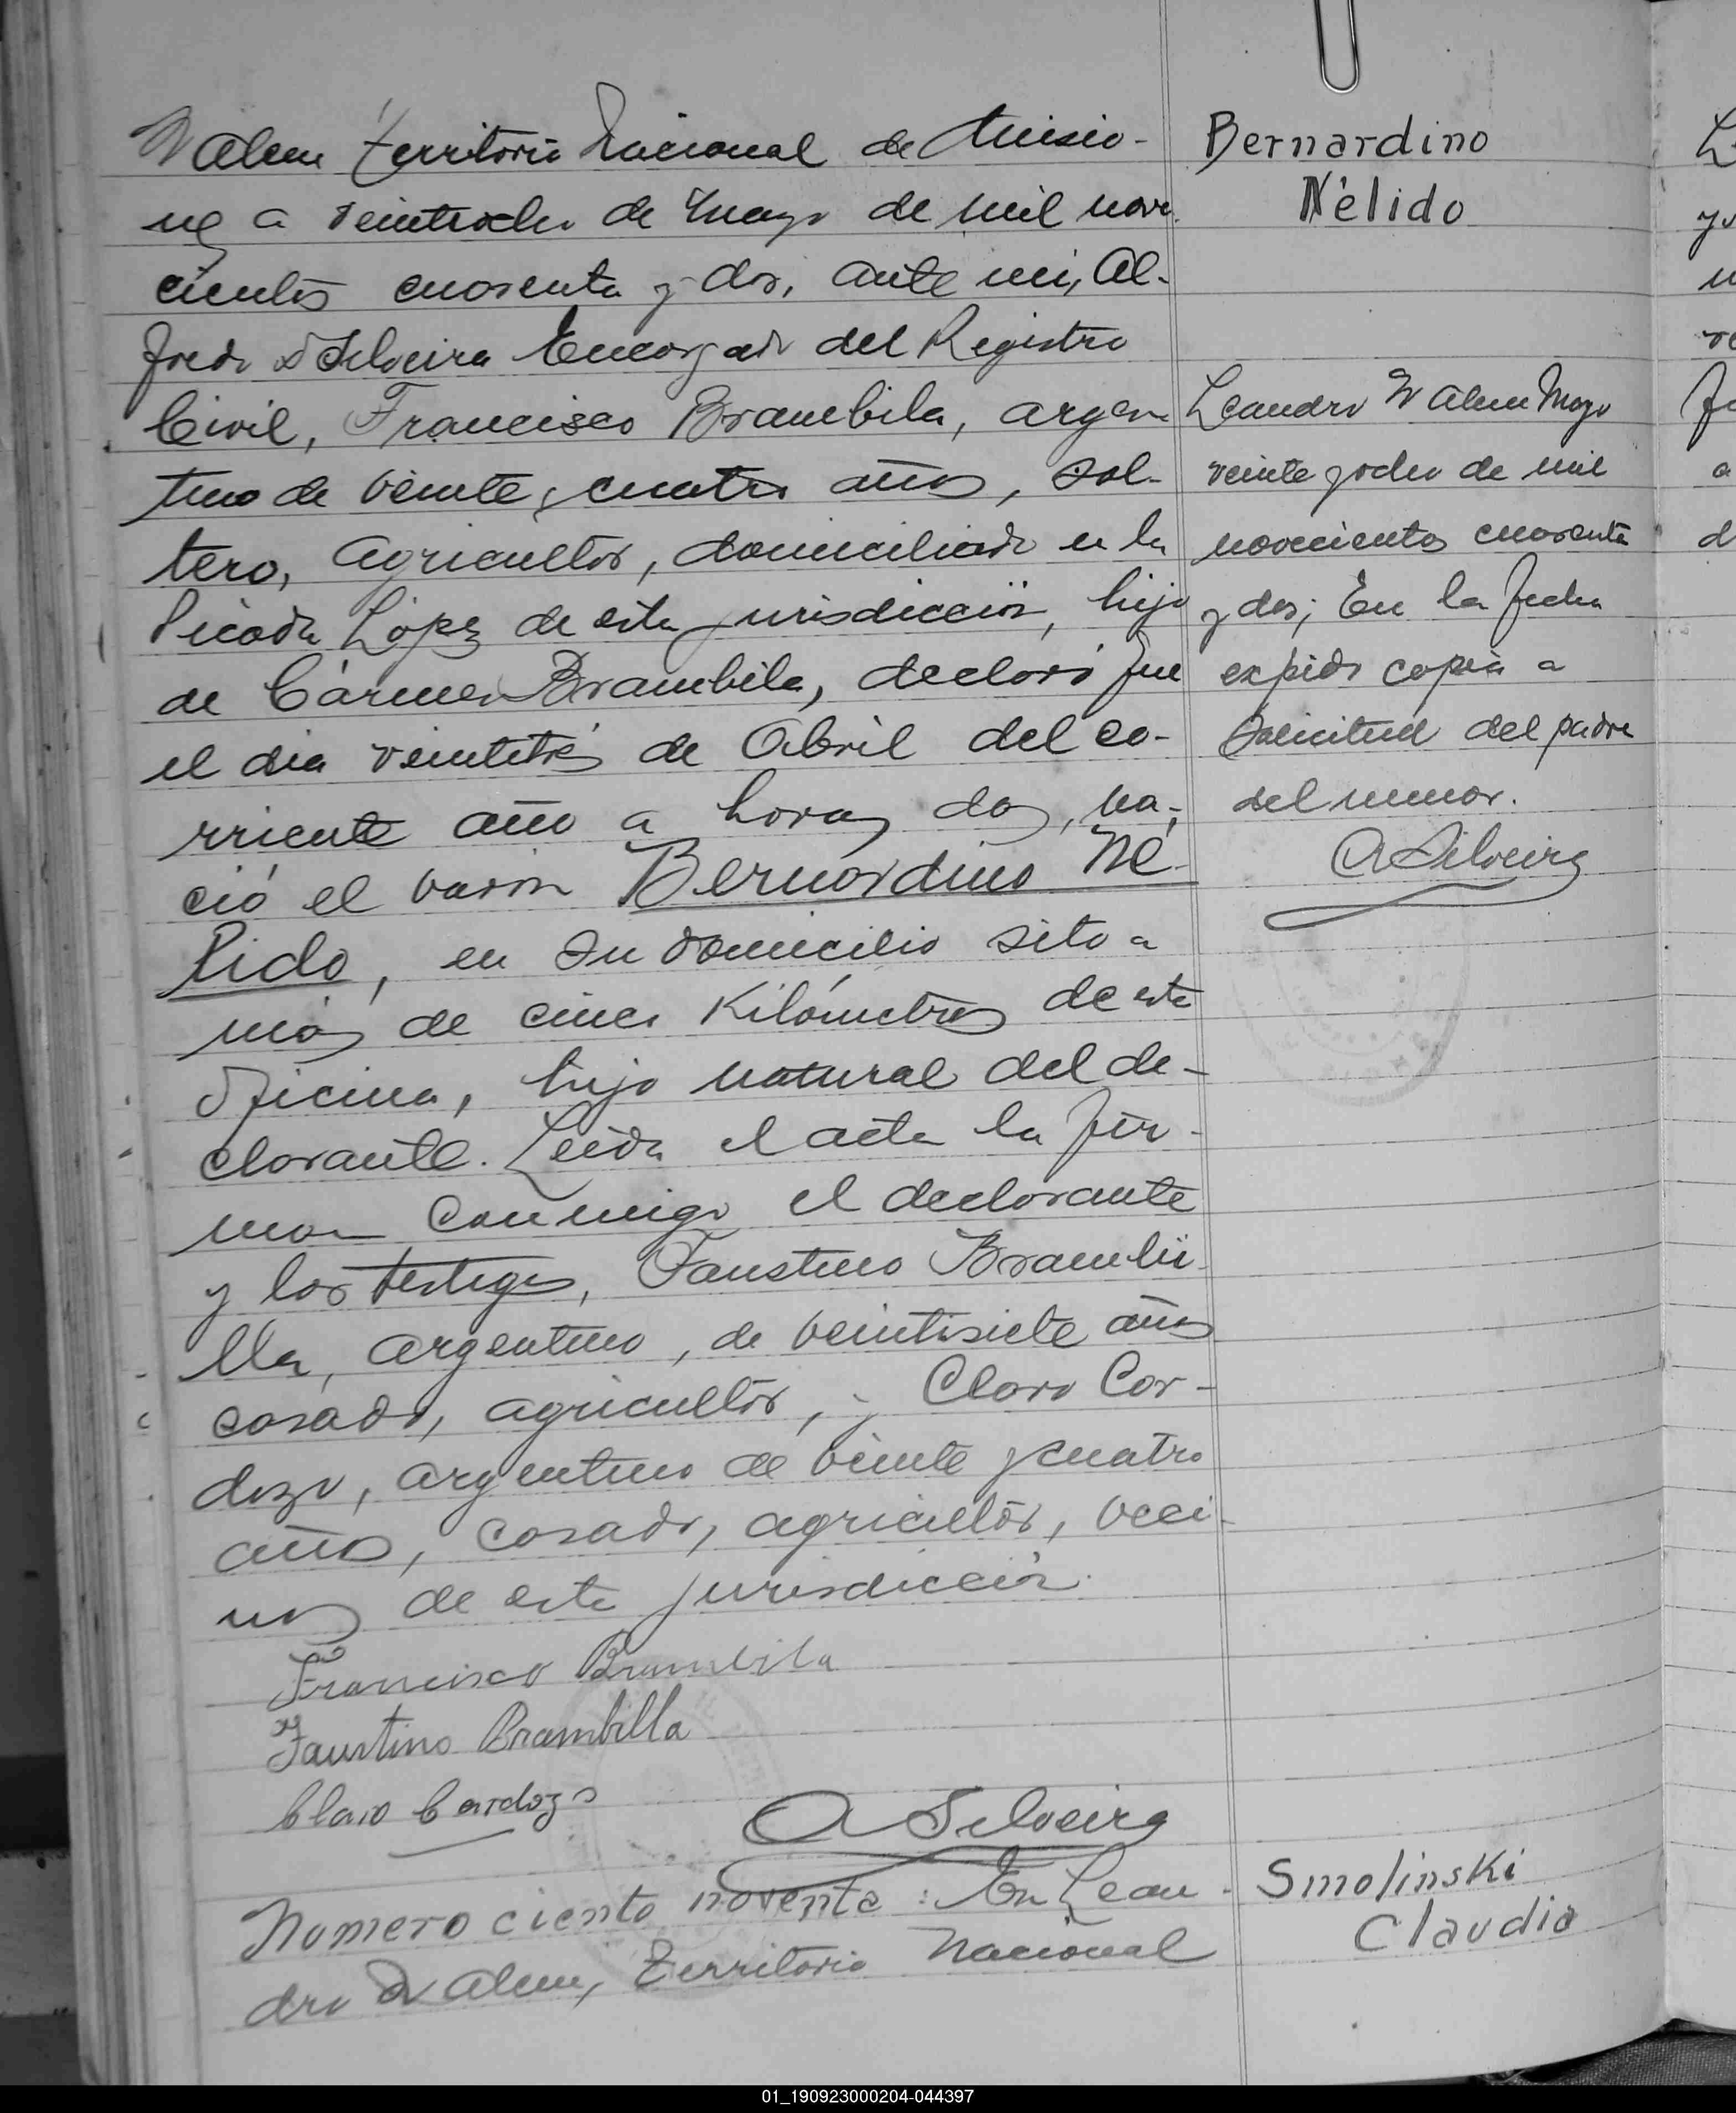 N Alem Territorio Nacional de Misio-
nes a veintiocho de Mayo de mil nove-
cientos cuarenta y dos, ante mi, Al-
fredo D Silveira Encargado del Registro
Civil, Francisco Brambila, argen
tino de veinte y cuatro años, sol-
tero, agricultor, domiciliado en la
Picada López de esta jurisdicción, hijo
de Cármen Brambila, declaró que
el dia veintitrés de Abril del co-
rriente año a horas dos, na-
ció el varon Bernardino Né
lido, en su domicilio sito a
más de cinco Kilómetros de esta
Oficina, hijo natural del de-
clarante. Leida el acta la fir-
man conmigo el declarante
y los testigos, Faustino Brambi-
lla, argentino, de veintisiete años
casado, agricultor, y Claro Car-
dozo, argentino de veinte y cuatro
años, casado, agricultor, veci-
nos de esta jurisdicción.
Francisco Brambila
Faustino Brambilla
Claro Cardozo
A Silveira
Numero ciento noventa: En Lean-
dro N Alem, Territorio Nacional
Bernardino
Nélido
Leandro N Alem Mayo
veinte y ocho de mil
novecientos cuarenta
y dos; En la fecha
expido copia a
solicitud del padre
del menor.
A Silveira
Smolinski
Claudia
01_190923000204-044397